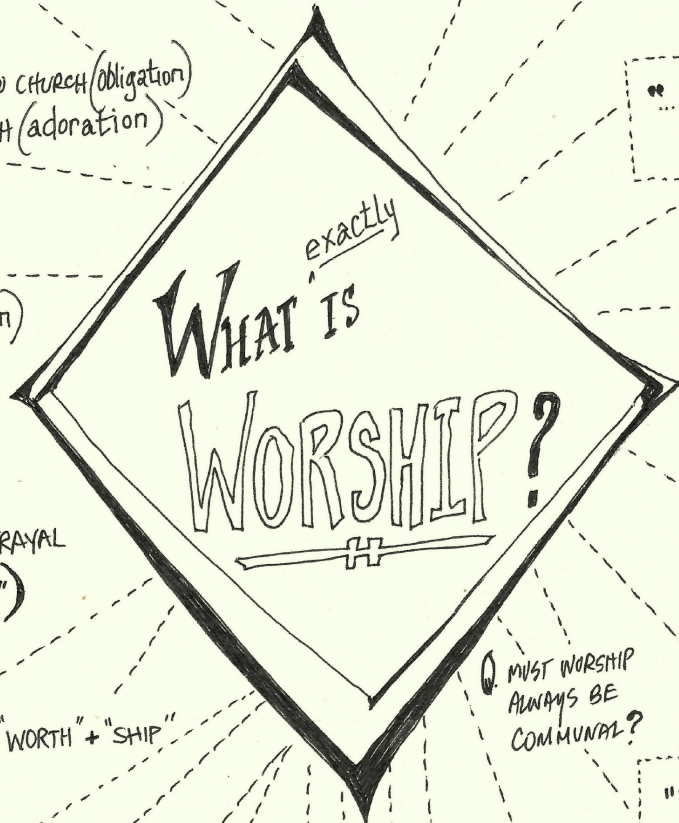 CHURCH (obligation)
(adoration)
exactly
WHAT IS
WORSHIP?
"WORTH" + "SHIP"
Q. MUST WORSHIP
ALWAYS BE
COMMUNAL?